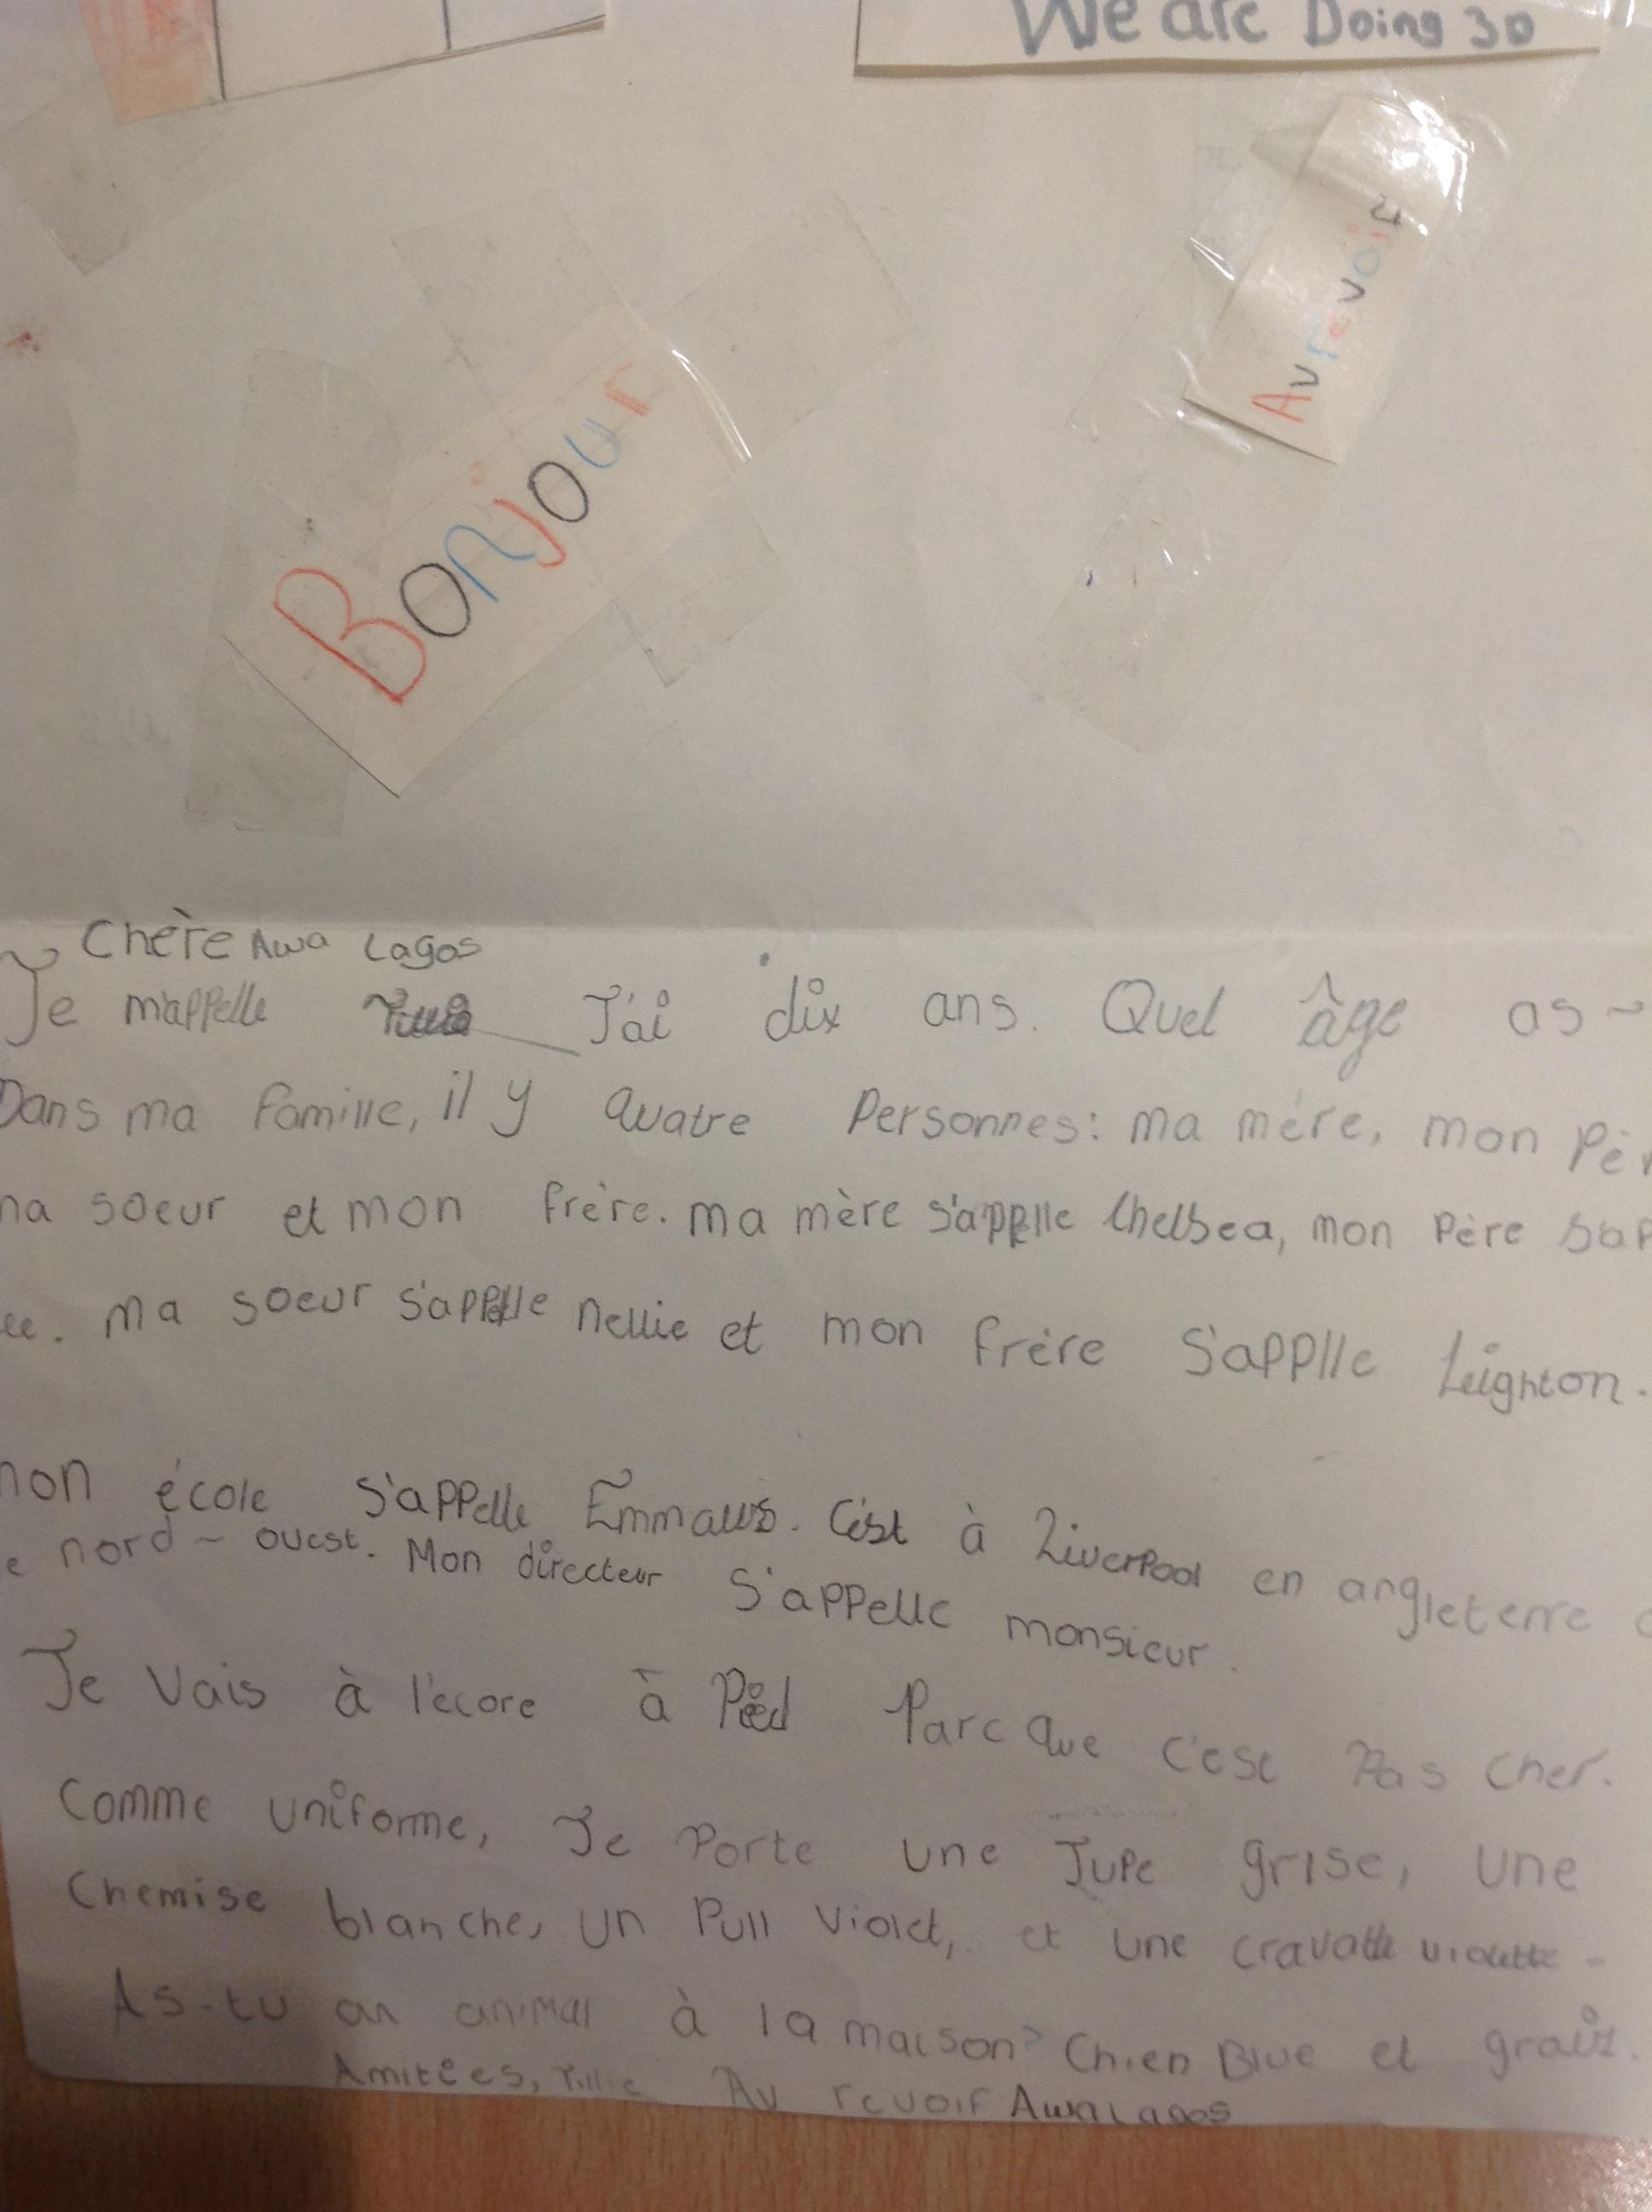 We are Doing 3D
Au revoir
Bonjour
Chère Awa Lagos
Je m'appelle J'ai dix ans. Quel âge as-
Dans ma famille, il y quatre Personnes: ma mère, mon Pèr
ma soeur et mon frère. ma mère s'applle Chelsea, mon Père s'ap
ee. Ma soeur s'appelle nellie et mon frère S'applle Leighton.
mon école s'appelle Emmaus. C'est à Liverpool en angleterre d
e nord-ouest. Mon directeur s'appelle monsieur.
Je vais à l'ecore à Pied Parc que c'est Pas cher.
Comme uniforme, Je Porte une Jupe grise, une
Chemise blanche, un Pull violet, et une cravatte violette.
As-tu an animal à la maison? Chien Blue et
Amitées, Tillie Au revoir Awa Lagos